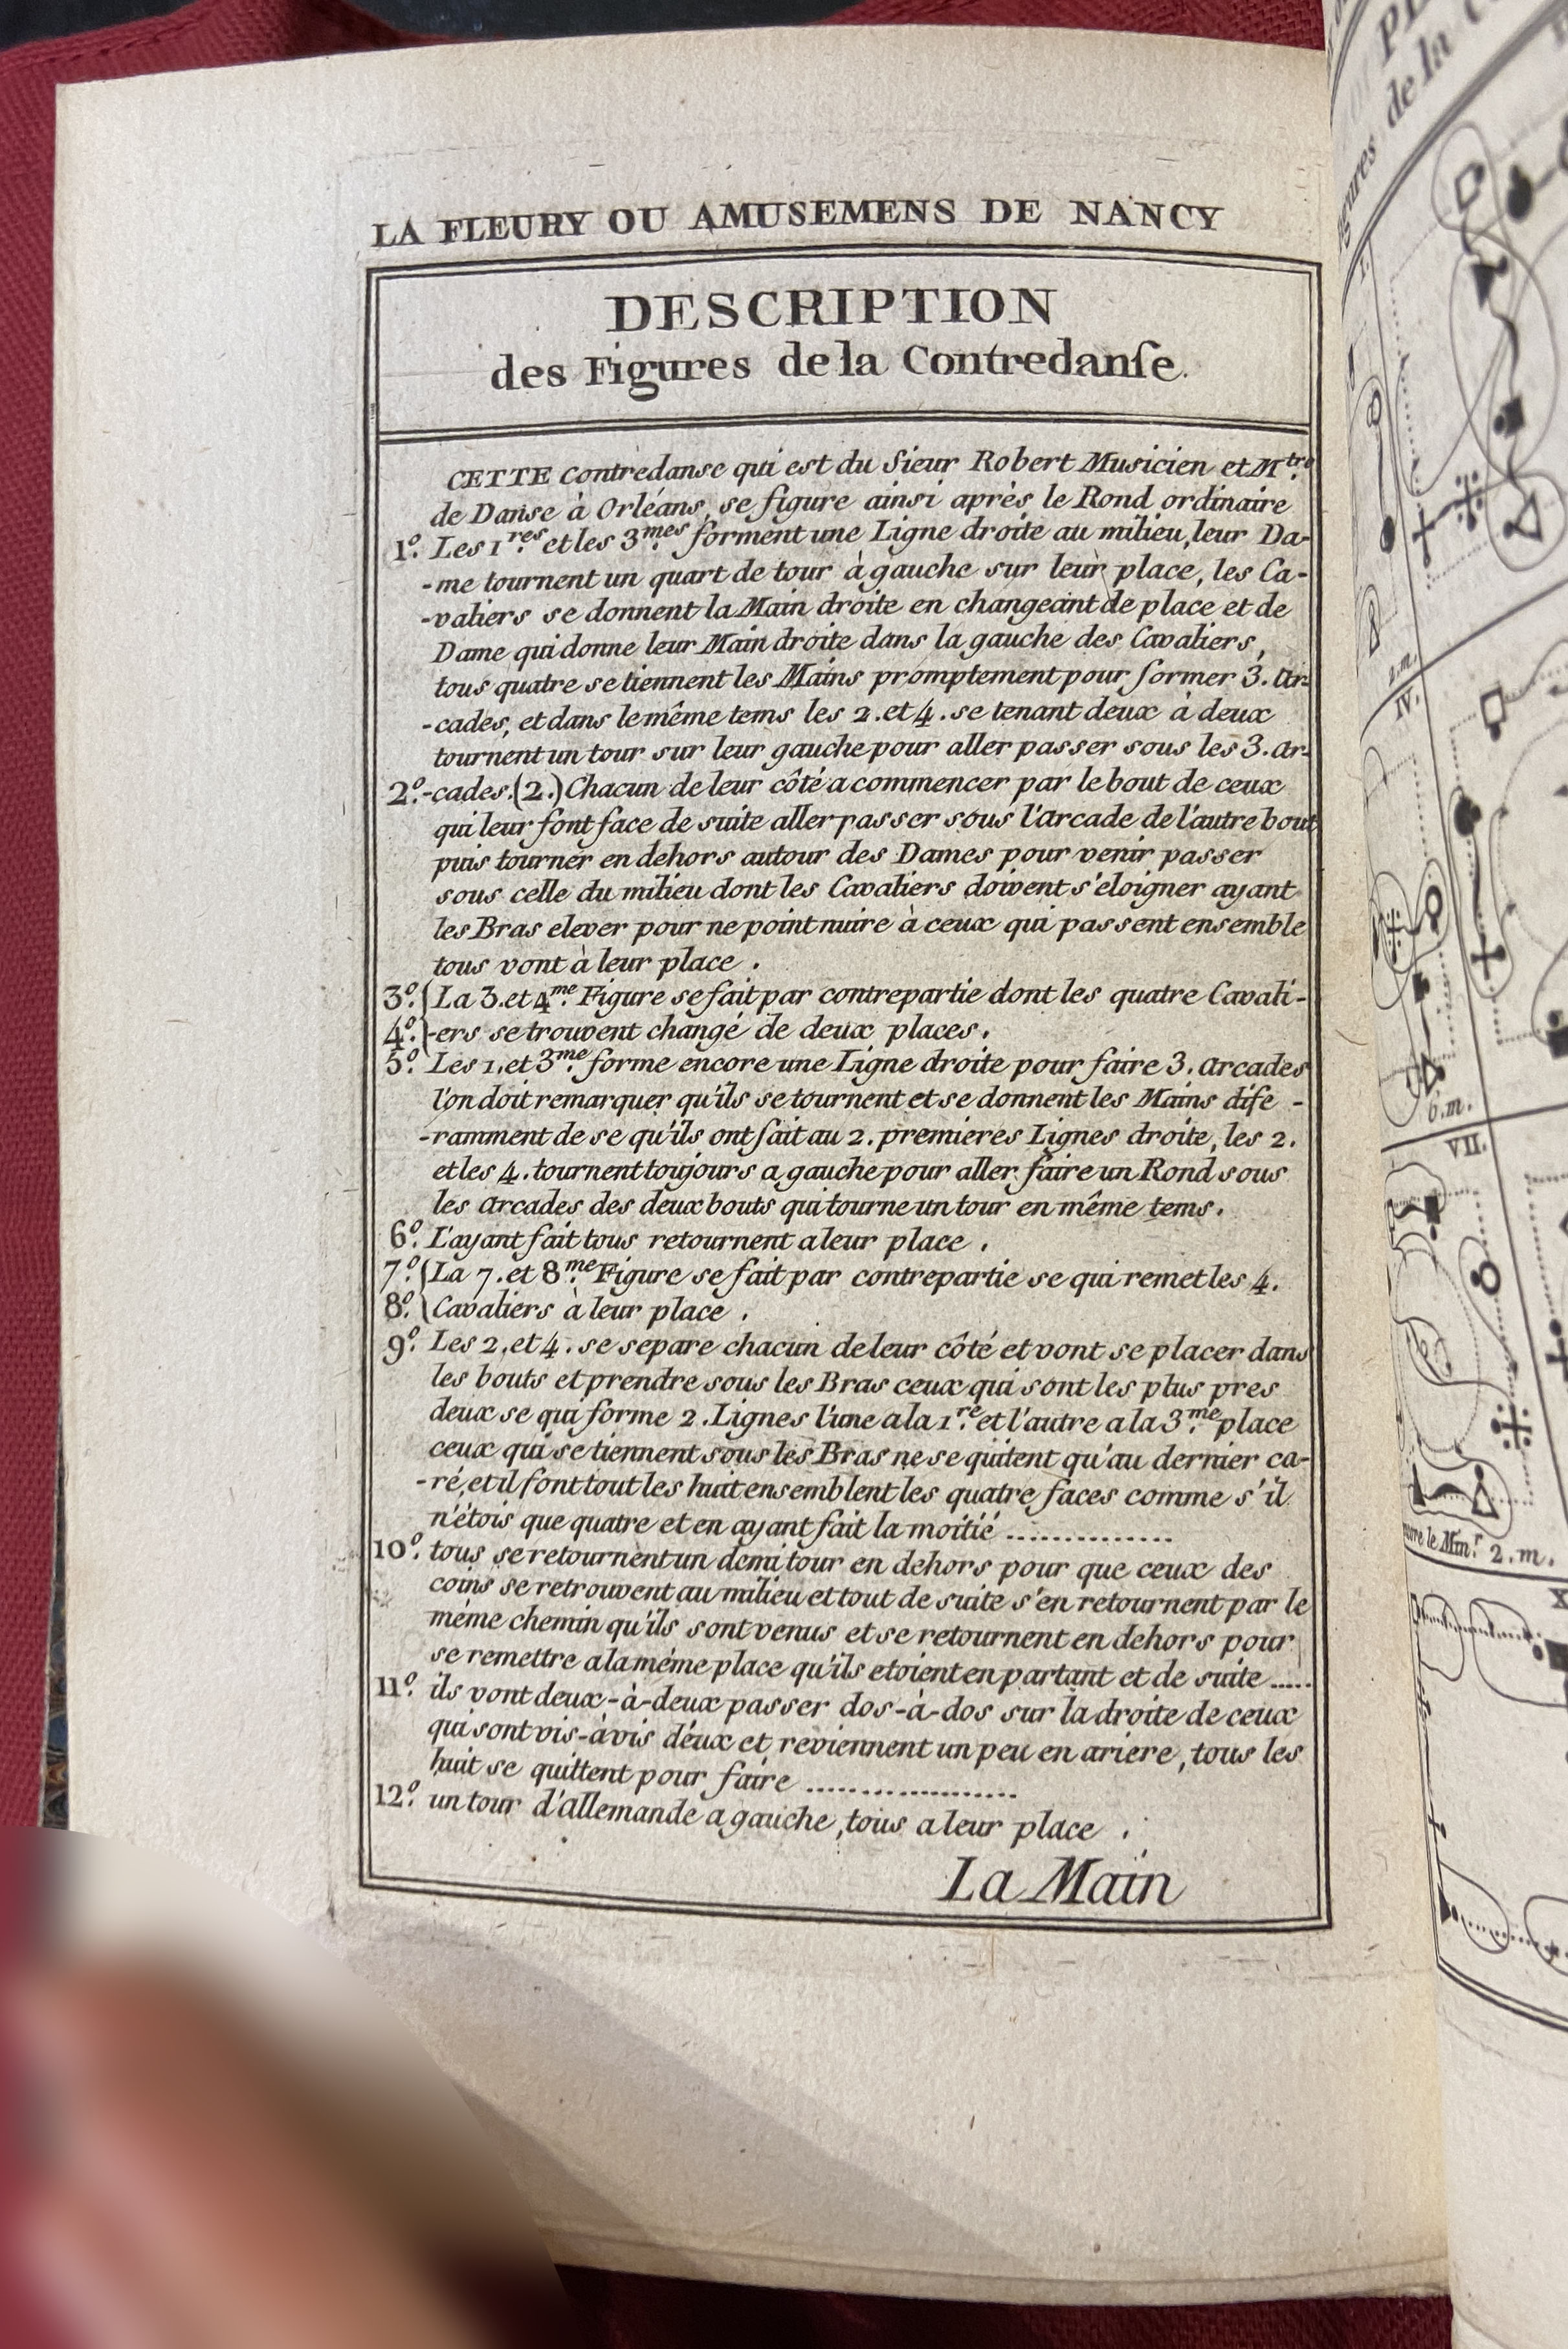 LA FLEURY OU AMUSEMENS DE NANCY
DESCRIPTION
des Figures de la Contredanſe.
CETTE Contredanse qui est du Sieur Robert Musicien et M.tre
de Danse à Orléans, se figure ainsi après le Rond ordinaire
1.º Les 1.res et les 3.mes forment une Ligne droite au milieu, leur Da-
-me tournent un quart de tour à gauche sur leur place, les Ca-
-valiers se donnent la Main droite en changeant de place et de
Dame qui donne leur Main droite dans la gauche des Cavaliers,
tous quatre se tiennent les Mains promptement pour former 3. Ar-
-cades, et dans le même tems les 2. et 4. se tenant deux à deux
tournent un tour sur leur gauche pour aller passer sous les 3. Ar-
2.º -cades. (2.) Chacun de leur côté a commencer par le bout de ceux
qui leur font face de suite aller passer sous l'Arcade de l'autre bout
puis tourner en dehors autour des Dames pour venir passer
sous celle du milieu dont les Cavaliers doivent s'eloigner ayant
les Bras elever pour ne point nuire à ceux qui passent ensemble
tous vont à leur place.
3.º { La 3. et 4.me Figure se fait par contrepartie dont les quatre Cavali-
4.º } -ers se trouvent changé de deux places.
5.º Les 1. et 3.me forme encore une Ligne droite pour faire 3. Arcades
l'on doit remarquer qu'ils se tournent et se donnent les Mains dife-
-ramment de se qu'ils ont fait au 2. premieres Lignes droite, les 2.
et les 4. tournent toujours a gauche pour aller faire un Rond sous
les Arcades des deux bouts qui tourne un tour en même tems.
6.º L'ayant fait tous retournent a leur place.
7.º { La 7. et 8.me Figure se fait par contrepartie se qui remet les 4.
8.º { Cavaliers à leur place.
9.º Les 2. et 4. se separe chacun de leur côté et vont se placer dans
les bouts et prendre sous les Bras ceux qui sont les plus pres
deux se qui forme 2. Lignes l'une a la 1.re et l'autre a la 3.me place
ceux qui se tiennent sous les Bras ne se quitent qu'au dernier ca-
-ré, et il font tout les huit ensemblent les quatre faces comme s'il
n'étois que quatre et en ayant fait la moitié ..............
10.º tous se retournent un demi tour en dehors pour que ceux des
coins se retrouvent au milieu et tout de suite s'en retournent par le
méme chemin qu'ils sont venus et se retournent en dehors pour
se remettre a la méme place qu'ils etoient en partant et de suite .....
11.º ils vont deux-à-deux passer dos-à-dos sur la droite de ceux
qui sont vis-àvis déux et reviennent un peu en ariere, tous les
huit se quittent pour faire ...................
12.º un tour d'Allemande a gauche, tous a leur place.
La Main
de la
IV.
6.m.
VII.
2.m.